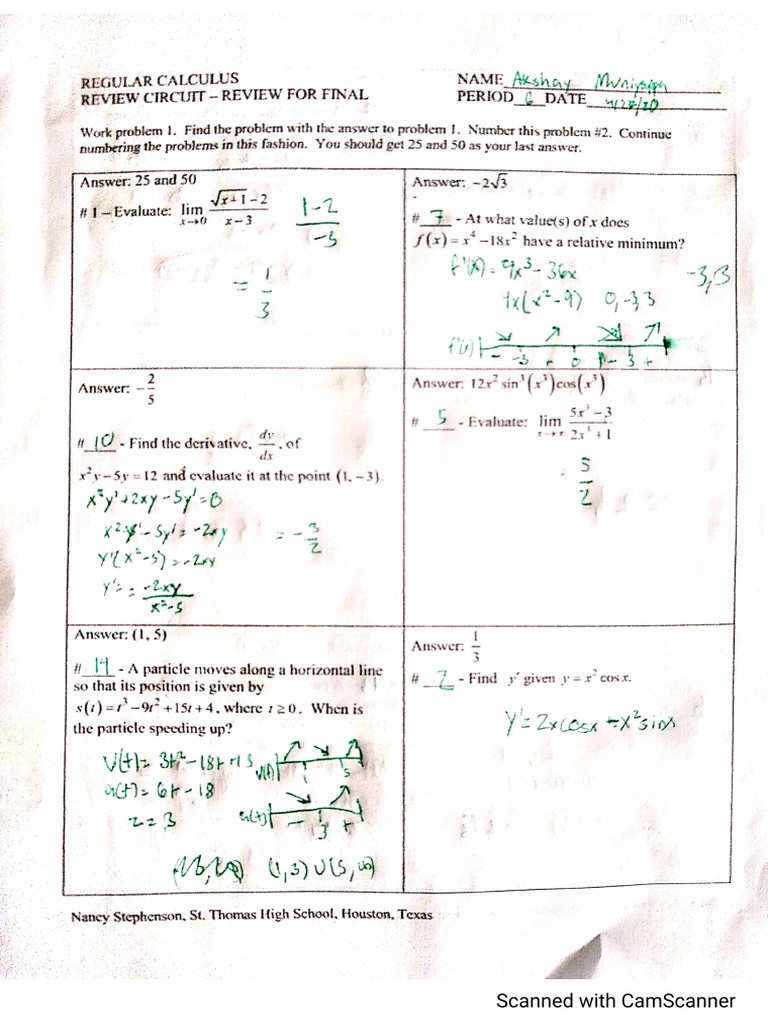 REGULAR CALCULUS
REVIEW CIRCUIT – REVIEW FOR FINAL
NAME Akshay
PERIOD 6 DATE
Work problem 1. Find the problem with the answer to problem 1. Number this problem #2. Continue
numbering the problems in this fashion. You should get 25 and 50 as your last answer.
Answer: 25 and 50
# 1 – Evaluate: lim x→0 (√(x+1) – 2)/(x – 3)
(1-2)/(-3)
= 1/3
Answer: –2√3
# 7 - At what value(s) of x does
f(x) = x⁴ – 18x² have a relative minimum?
f'(x) = 4x³ - 36x
-3, 3
4x(x² - 9) 0, -3, 3
f'(x) - -3 + 0 - 3 +
Answer: –2/5
# 10 - Find the derivative, dy/dx, of
x²y – 5y = 12 and evaluate it at the point (1, –3).
x²y' + 2xy - 5y' = 0
x²y' - 5y' = -2xy
= -3/2
y'(x² - 5) = -2xy
y' = = -2xy/(x² - 5)
Answer: 12x² sin³(x³)cos(x³)
# 5 - Evaluate: lim x→∞ (5x³ – 3)/(2x³ + 1)
= 5/2
Answer: (1, 5)
# 14 - A particle moves along a horizontal line
so that its position is given by
s(t) = t³ – 9t² + 15t + 4, where t ≥ 0. When is
the particle speeding up?
v(t) = 3t² - 18t + 15
v(t) 1 5
a(t) = 6t - 18
a(t) - 3 +
2 = 3
(1,3) ∪ (5, ∞)
Answer: 1/3
# 2 - Find y' given y = x² cos x.
y' = 2xcosx - x² sinx
Nancy Stephenson, St. Thomas High School, Houston, Texas
Scanned with CamScanner